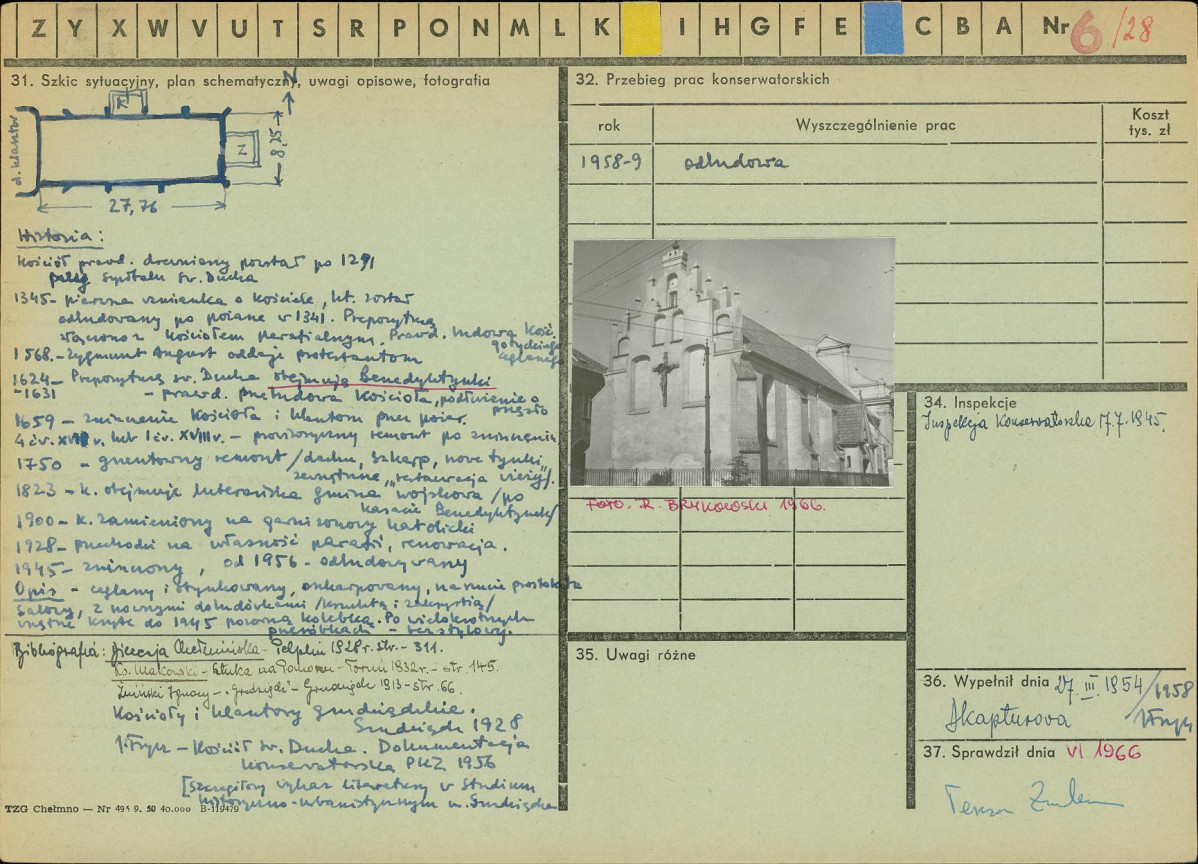 Z Y X W V U T S R P O N M L K I H G F E C B A Nr 6/28
31. Szkic sytuacyjny, plan schematyczny, uwagi opisowe, fotografia
N
K
d. klasztor
Z
8,25
27,76
Historia:
Kościół prawd. drewniany powstał po 1291
przy szpitalu św. Ducha
1345 - pierwsza wzmianka o kościele, kt. został
odbudowany po pożarze w 1341. Prepozyturę
złączono z kościołem parafialnym. Prawd. budowa kość.
gotyckiego
ceglanego
1568.- Zygmunt August oddaje protestantom
1624 - Prepozyturę św. Ducha obejmują Benedyktynki
-1631 - prawd. przebudowa kościoła, podłużenie o
przęsło
1659 - zniszczenie kościoła i klasztoru przez pożar.
4 ćw. XVII w. lub 1 ćw. XVIII w. - prowizoryczny remont po zniszczeniu
1750 - gruntowny remont /dachu, szkarp, nowe tynki
zewnętrzne, "restauracja wieży"/.
1823 - k. obejmuje luterańska gmina wojskowa /po
kasacie Benedyktynek/
1900 - k. zamieniony na garnizonowy katolicki
1928 - przechodzi na własność parafii, renowacja.
1945 - zniszczony, od 1956 - odbudowywany
Opis - ceglany i otynkowany, oszkarpowany, na rzucie prostokąta
salowy, z bocznymi dobudówkami /kruchtą i zakrystią/
wnętrze kryte do 1945 pozorną kolebką. Po wielokrotnych
przeróbkach - bezstylowy.
Bibliografia: Diecezja Chełmińska - Pelplin 1928 r. str. - 311.
Ks. Makowski - Sztuka na Pomorzu - Toruń 1932 r. - str. 145.
Żniński Ignacy - "Grudziądz" - Grudziądz 1913 - str. 66.
Kościoły i klasztory grudziądzkie.
Grudziądz 1928
I. Fryc - Kościół św. Ducha. Dokumentacja
konserwatorska PKZ 1956
[Szczegółowy wykaz literatury w Studium
historyczno-urbanistycznym m. Grudziądza
TZG Chełmno — Nr 495 9. 50 40.000 B-119479
32. Przebieg prac konserwatorskich
rok Wyszczególnienie prac Koszt tys. zł
1958-9 odbudowa
FOTO. R. BRYKOWSKI 1966.
34. Inspekcje
Inspekcja Konserwatorska 17.7.1945.
35. Uwagi różne
36. Wypełnił dnia 27. III. 1954 /1958
Akapturova / I. Fryc
37. Sprawdził dnia VI 1966
Teresa